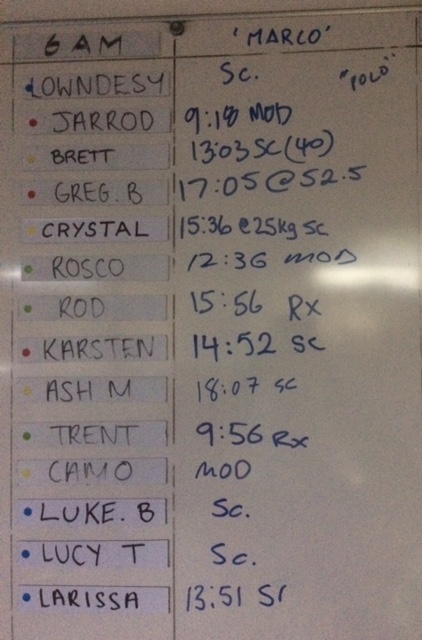 6 AM 'MARCO'
LOWNDESY Sc. "POLO"
JARROD 9:18 MOD
BRETT 13:03 SC (40)
GREG. B 17:05 @ 52.5
CRYSTAL 15:36 @ 25kg Sc
ROSCO 12:36 MOD
ROD 15:56 Rx
KARSTEN 14:52 SC
ASH M 18:07 SC
TRENT 9:56 Rx
CAMO MOD
LUKE. B Sc.
LUCY T Sc.
LARISSA 13:51